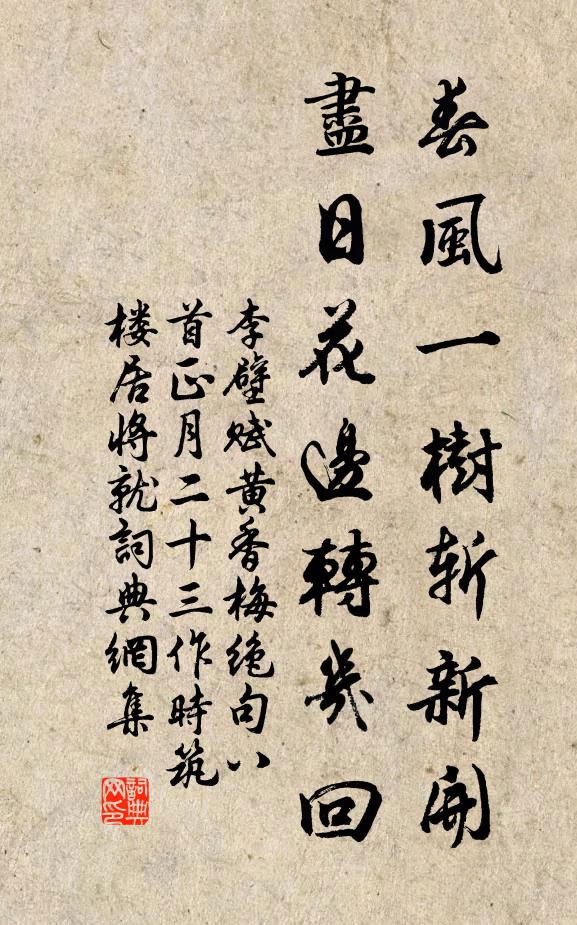 春風一樹斬新開
盡日花邊轉幾回
李壁賦黄香梅絶句八
首正月二十三作時筑
楼居将就詞典網集
詞典网印